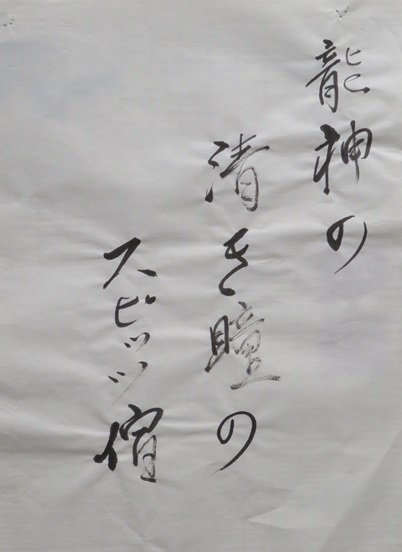 龍神の
清き瞳の
スピッツ